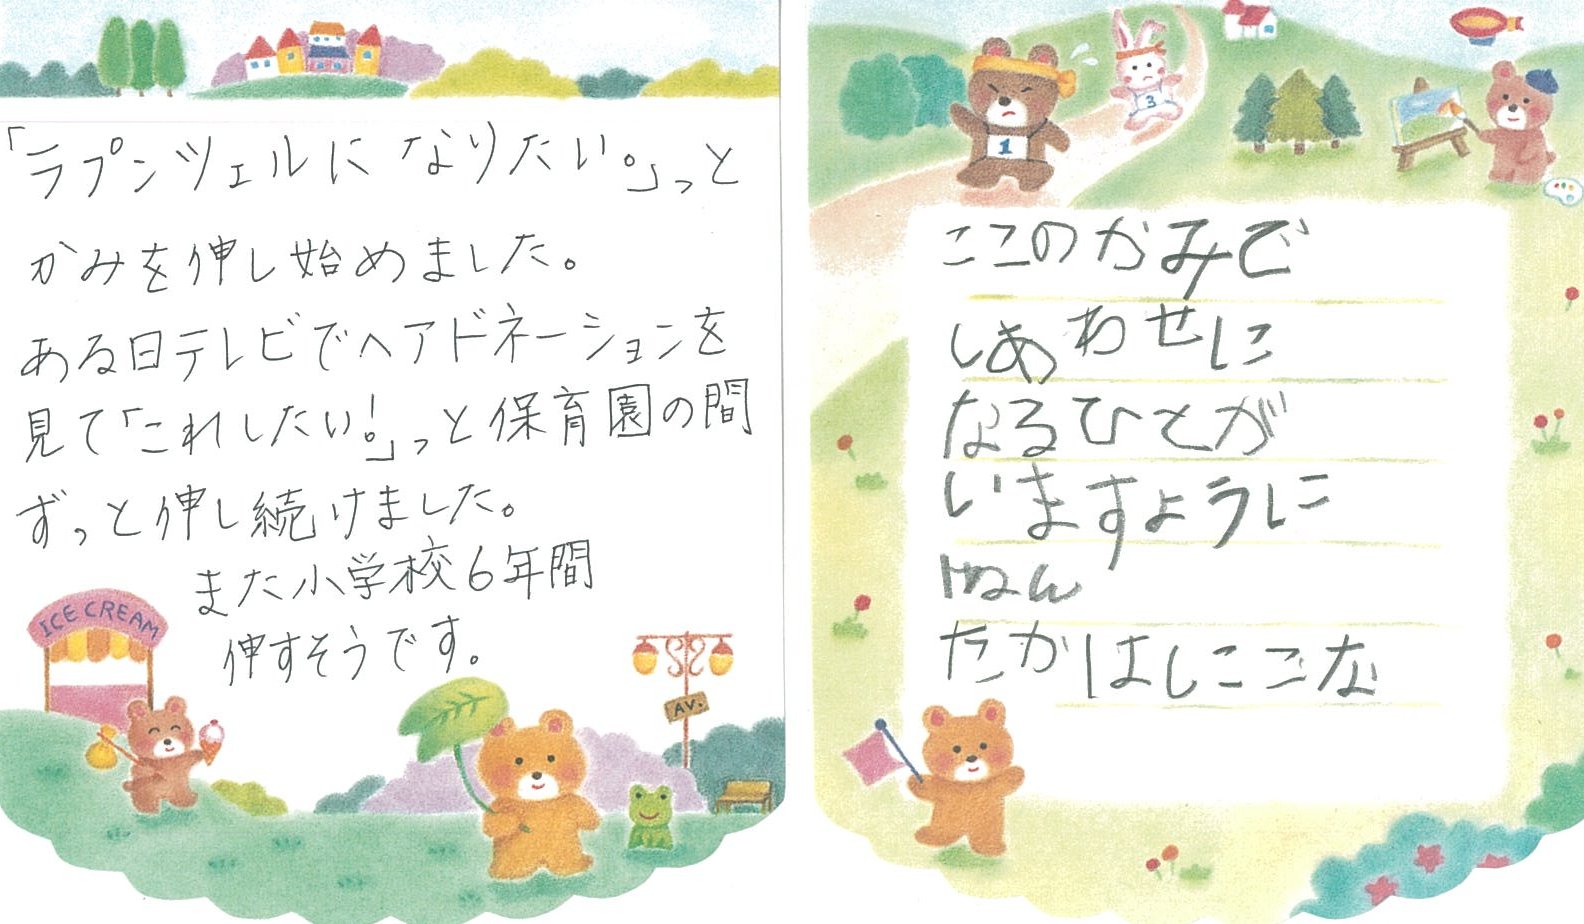 「ラプンツェルになりたい。」っと
かみを伸し始めました。
ある日テレビでヘアドネーションを
見て「これしたい!。」っと保育園の間
ずっと伸し続けました。
また小学校6年間
伸すそうです。
ICE CREAM
AV.
1
3
ここのかみで
しあわせに
なるひとが
いますように
ねん
たかはしここな